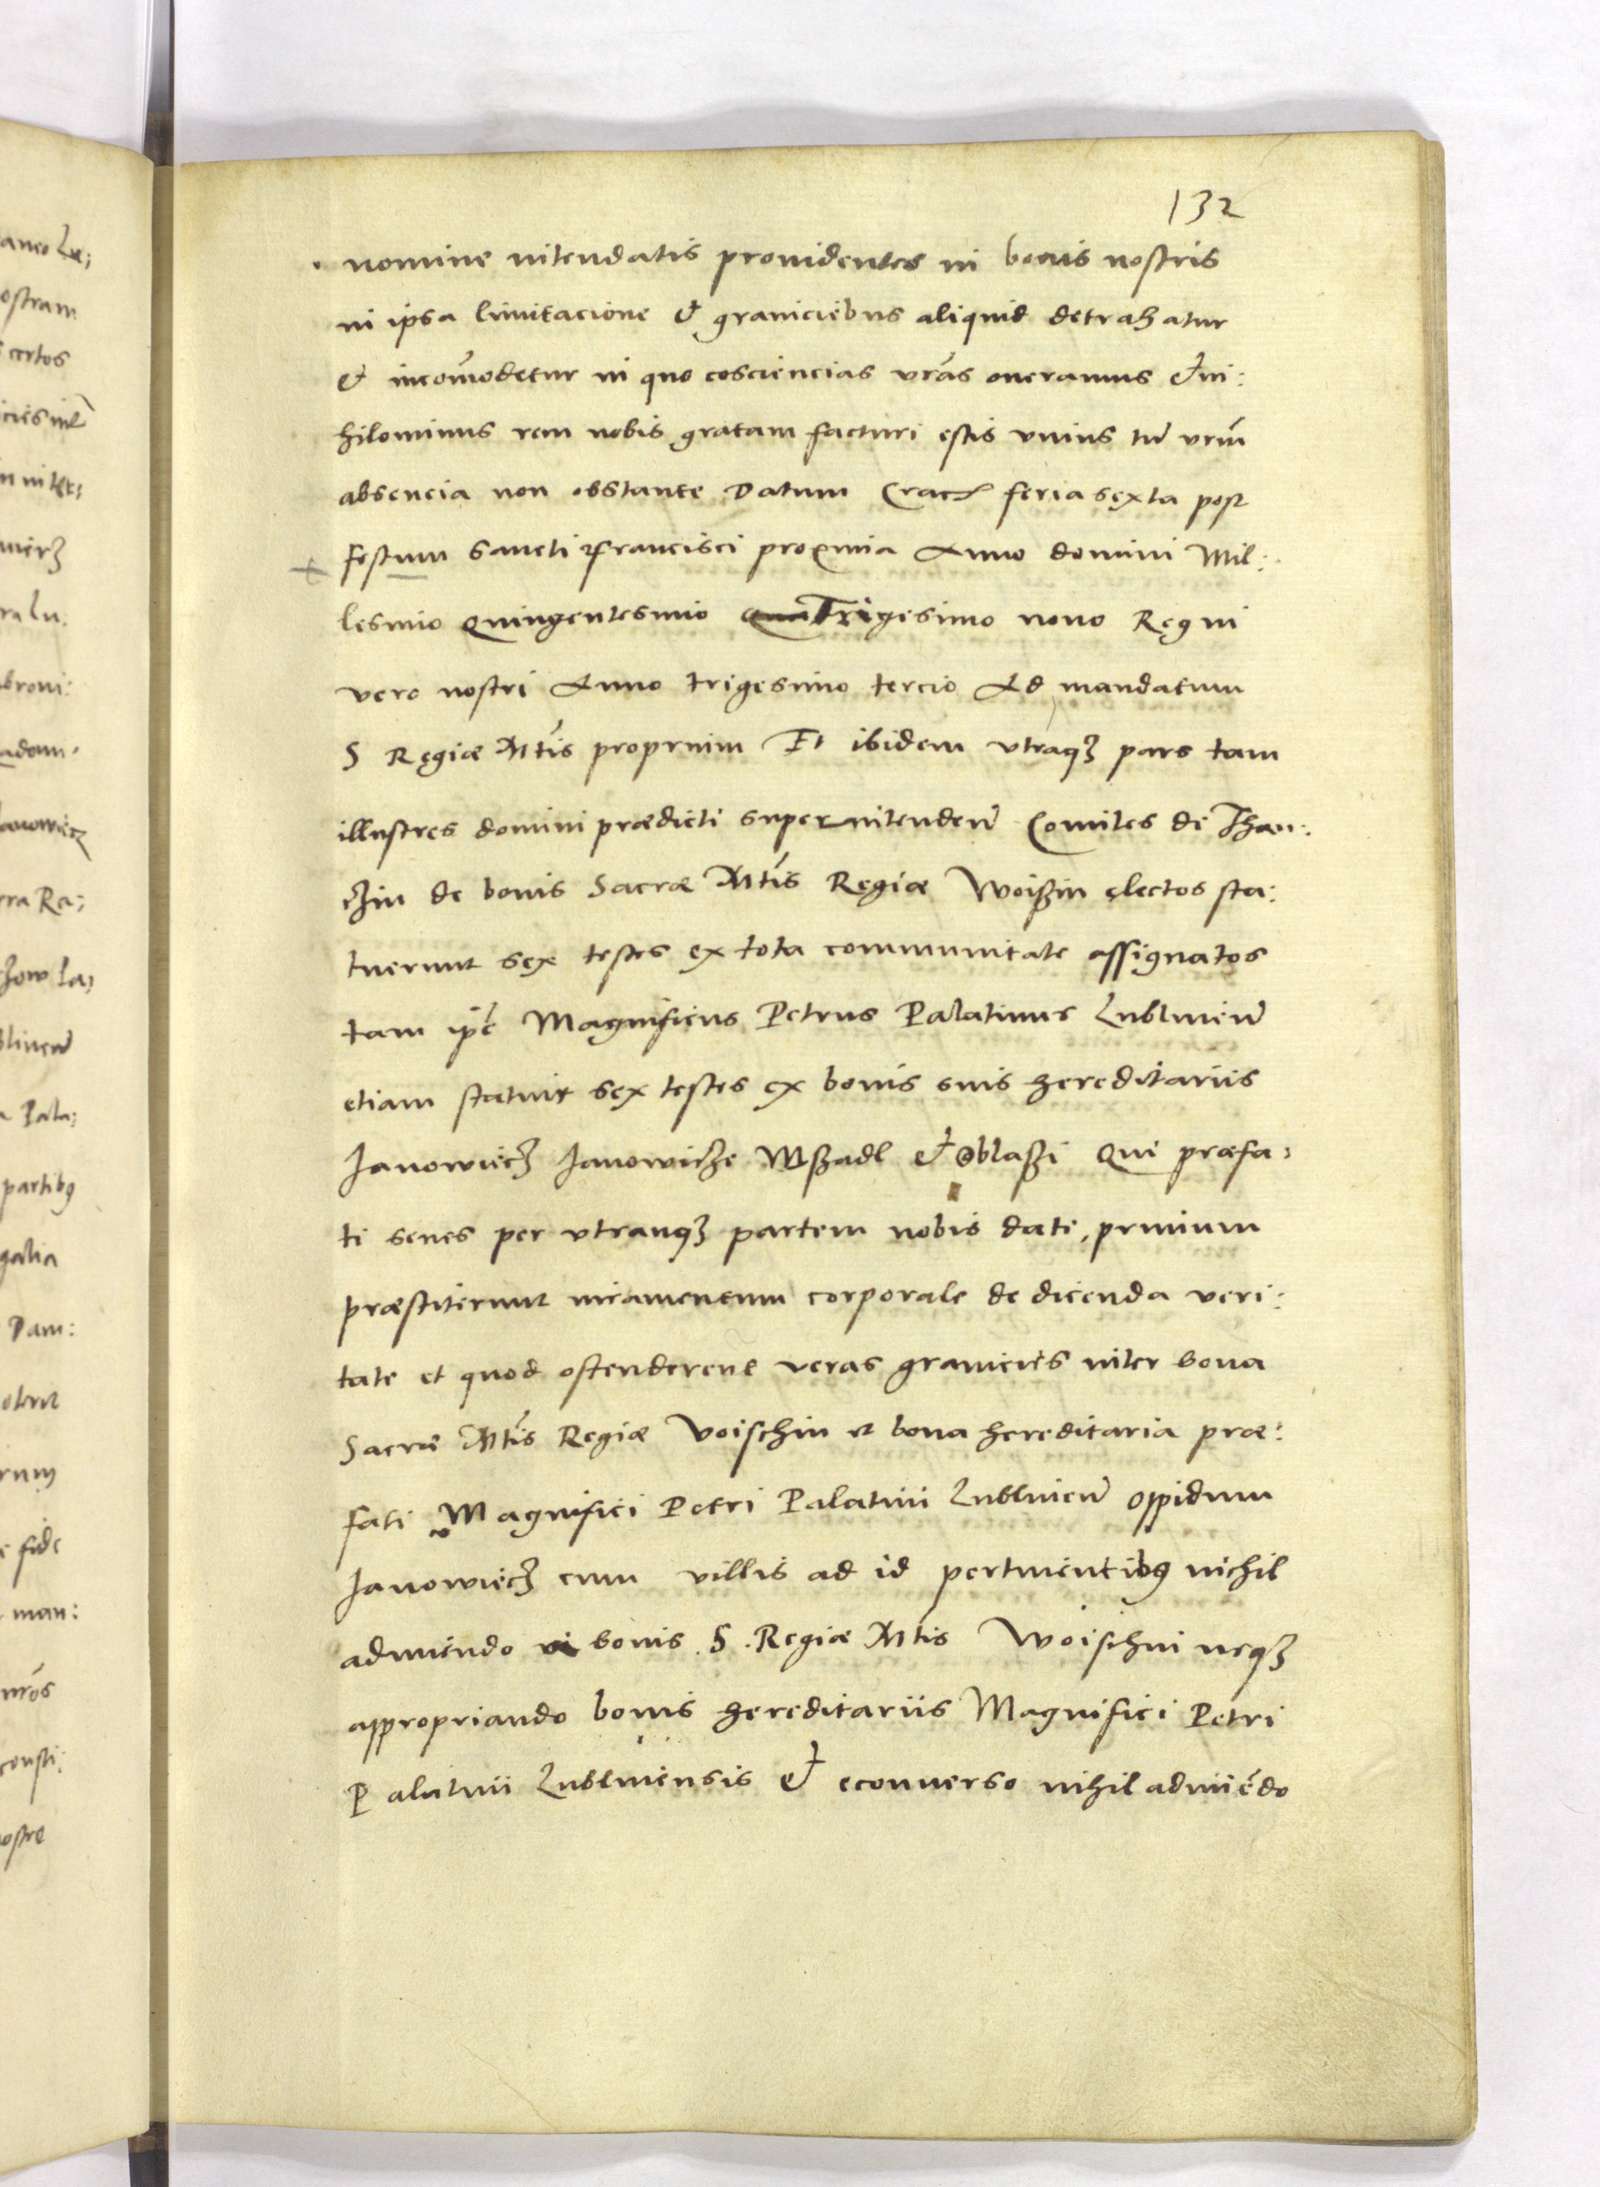 132
nomine intendatis prouidentes ni bonis nostris
in ipsa limitacione & graniciebus aliquid detrahatur
& incom̄odetur in quo cosciencias vrās oneramus & ni:
hilominus rem nobis gratam facturi estis vnius tn̄ vrm̄
absencia non obstante Datum Crac feria sexta post
festum Sancti Francisci proxima Anno domini Mil:
lesimo Quingentesimo Trigesimo nono Regni
vero nostri Anno trigesimo tercio Ad mandatum
S Regiæ Mtīs proprium Et ibidem vtraqз pars tam
illustres domini prædicti superintendeñ Comites de Than:
czin de bonis Sacræ Mtīs Regiæ Woißin electos sta:
tuerunt sex testes ex tota communitate assignatos
tam ip̄e Magnificus Petrus Palatinus Lublineñ
etiam statuit sex testes ex bonis suis hereditariis
Janowiecз Janowicze Mßadl & Oblaßi Qui præfa:
ti senes per vtranqз partem nobis dati, primum
præstiterunt iuramentum corporale de dicenda veri:
tate et quod ostenderent veras granicies inter bona
Sacræ Mtīs Regiæ Voischin et bona hereditaria præ:
fati Magnifici Petri Palatini Lublineñ oppidum
Janowiecз cum villis ad id pertinentibꝯ nichil
adimendo bonis S. Regiæ Mtis Woischni neqз
appropriando bonis hereditariis Magnifici Petri
Palatini Lublinensis & econuerso nihil adimēdo
aneo Lu;
ostram
certos
ra Lu.
Janowiecz
rra Ra;
a Pala;
partibꝯ
galia
Dam:
fide
man:
consti:
ostre